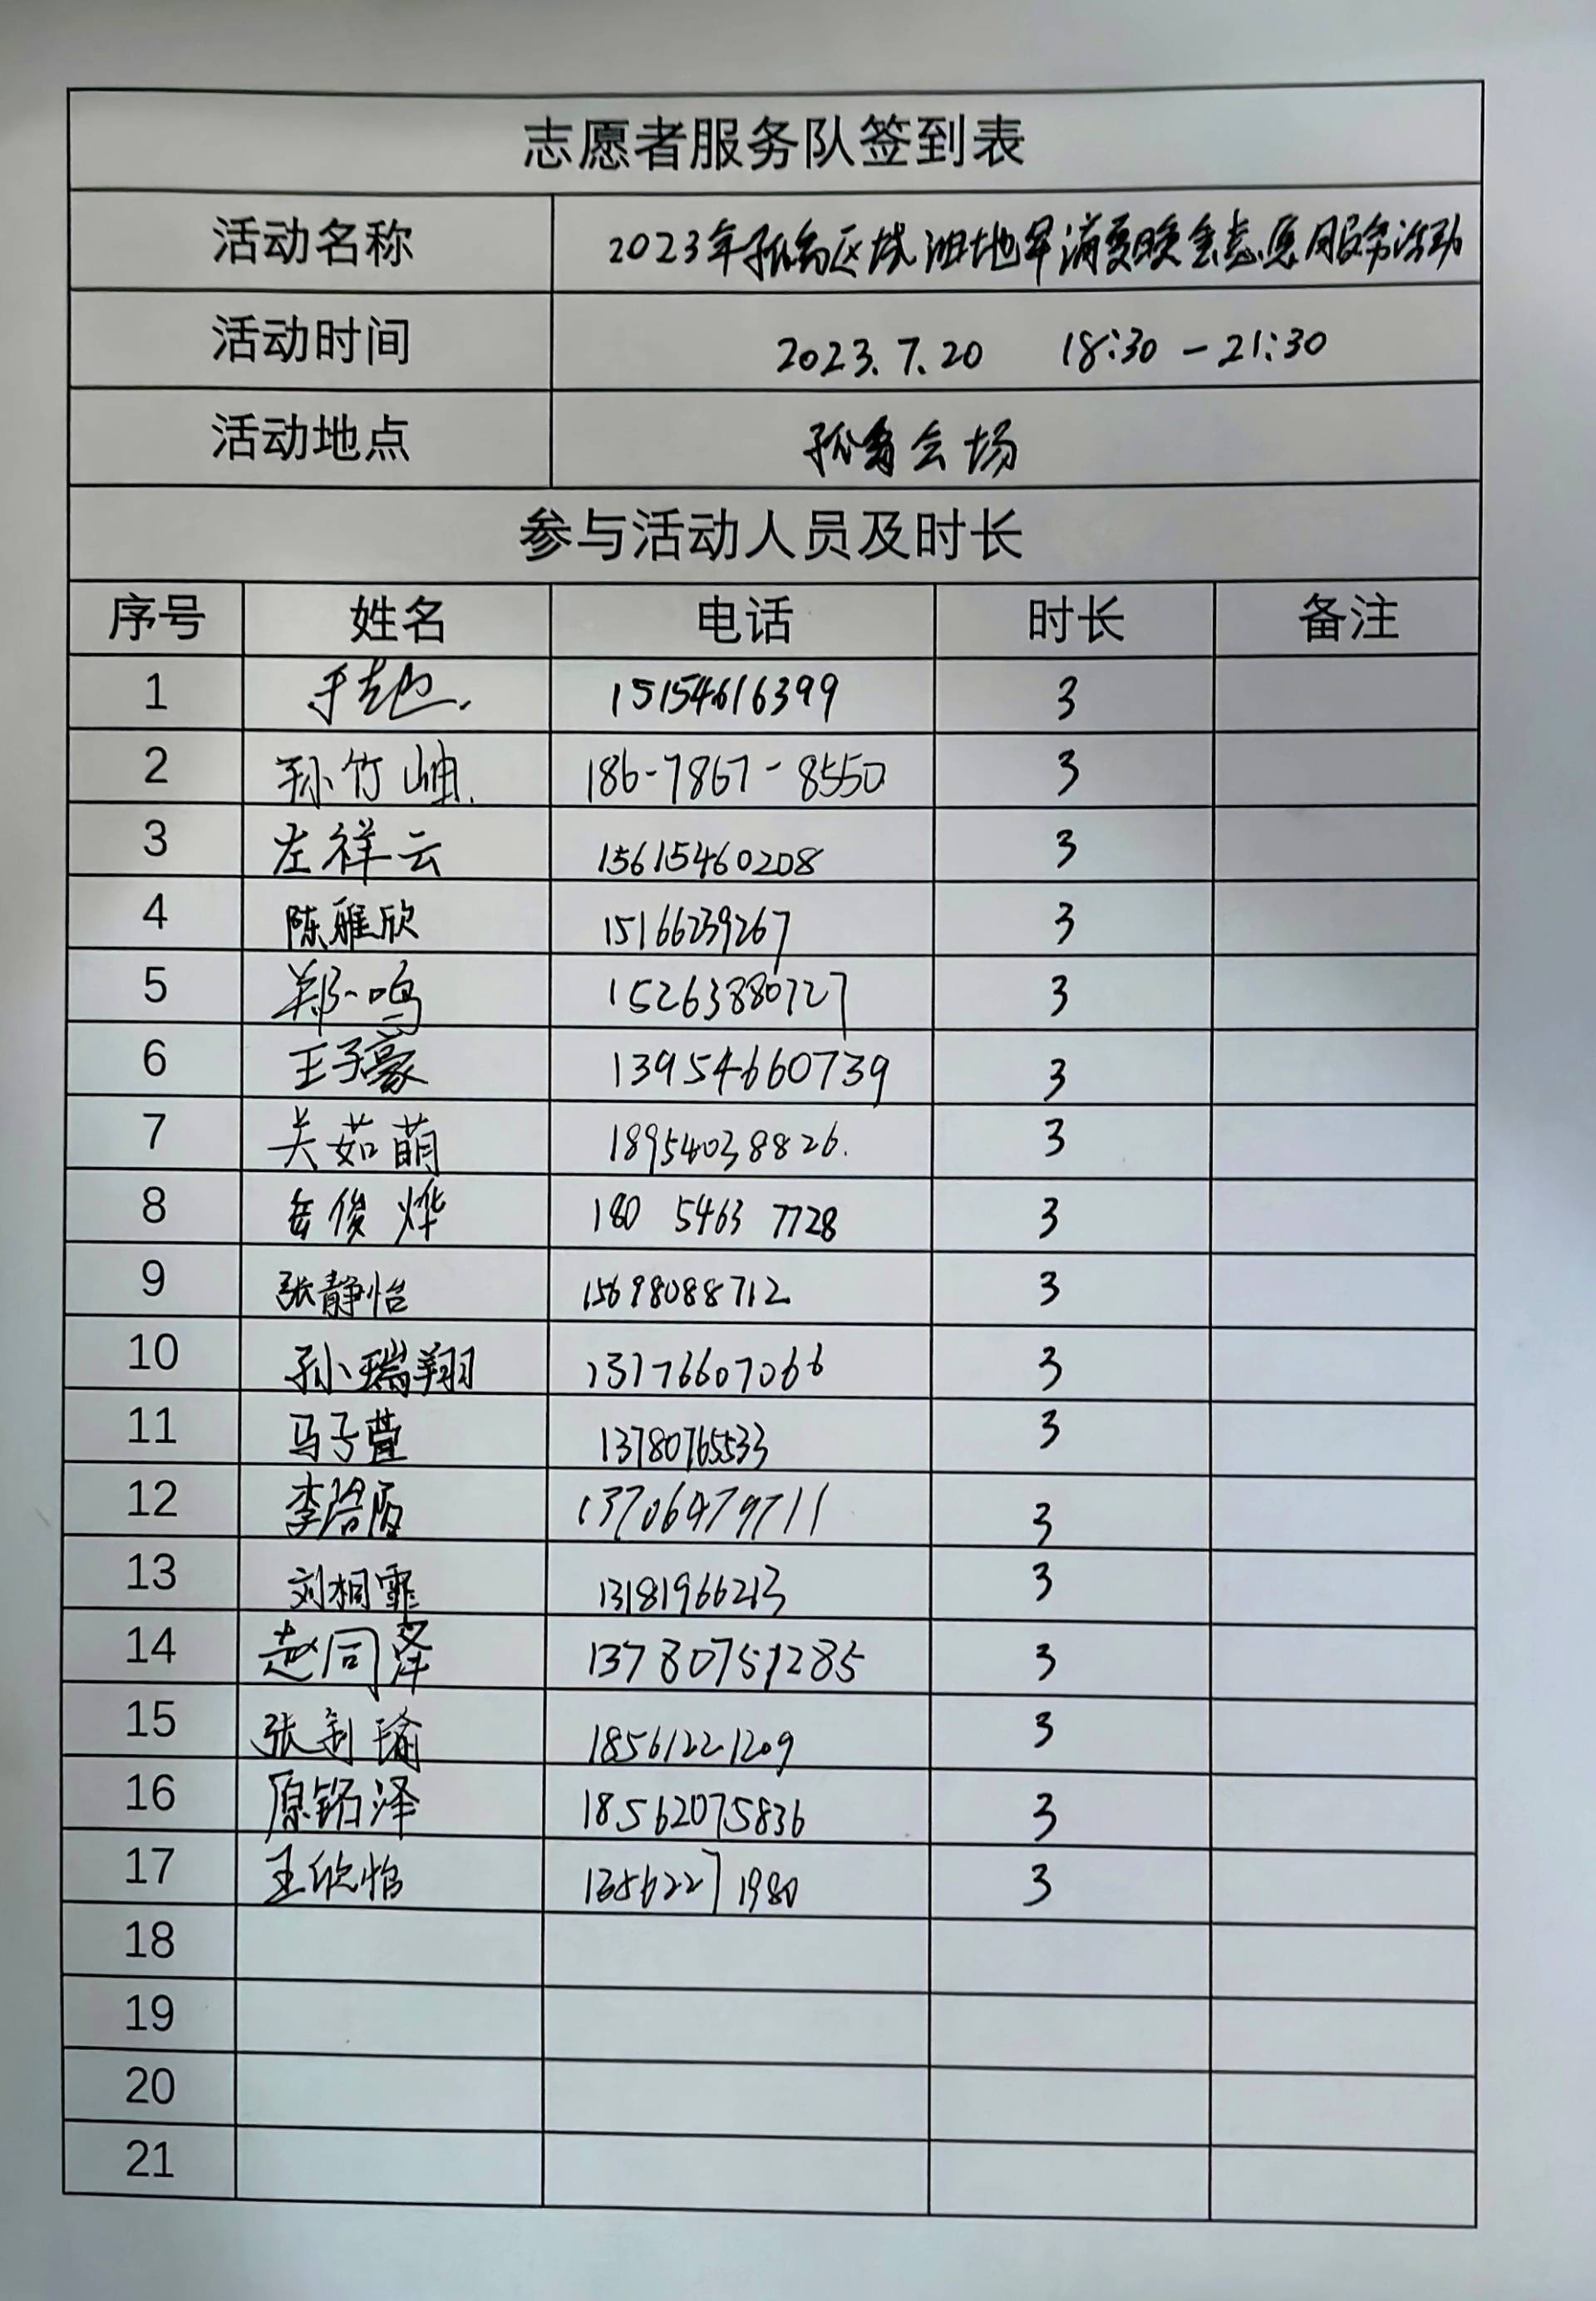 志愿者服务队签到表
活动名称 2023年孤岛区域油地军消夏晚会志愿服务活动
活动时间 2023.7.20 18:30-21:30
活动地点 孤岛会场
参与活动人员及时长
序号 姓名 电话 时长 备注
1 15154616399 3
2 孙竹岫 186-7867-8550 3
3 左祥云 15615460208 3
4 陈雅欣 15166239267 3
5 郑一鸣 15263880727 3
6 王子豪 13954660739 3
7 关茹萌 18954038826. 3
8 岳俊烨 180 5463 7728 3
9 张静怡 15698088712 3
10 孙瑞翔 13176607066 3
11 马子萱 13780765533 3
12 13706479711 3
13 刘桐霏 13181966213 3
14 赵同泽 13780751285 3
15 18561221209 3
16 原铭泽 18562075836 3
17 王欣怡 13562271980 3
18
19
20
21